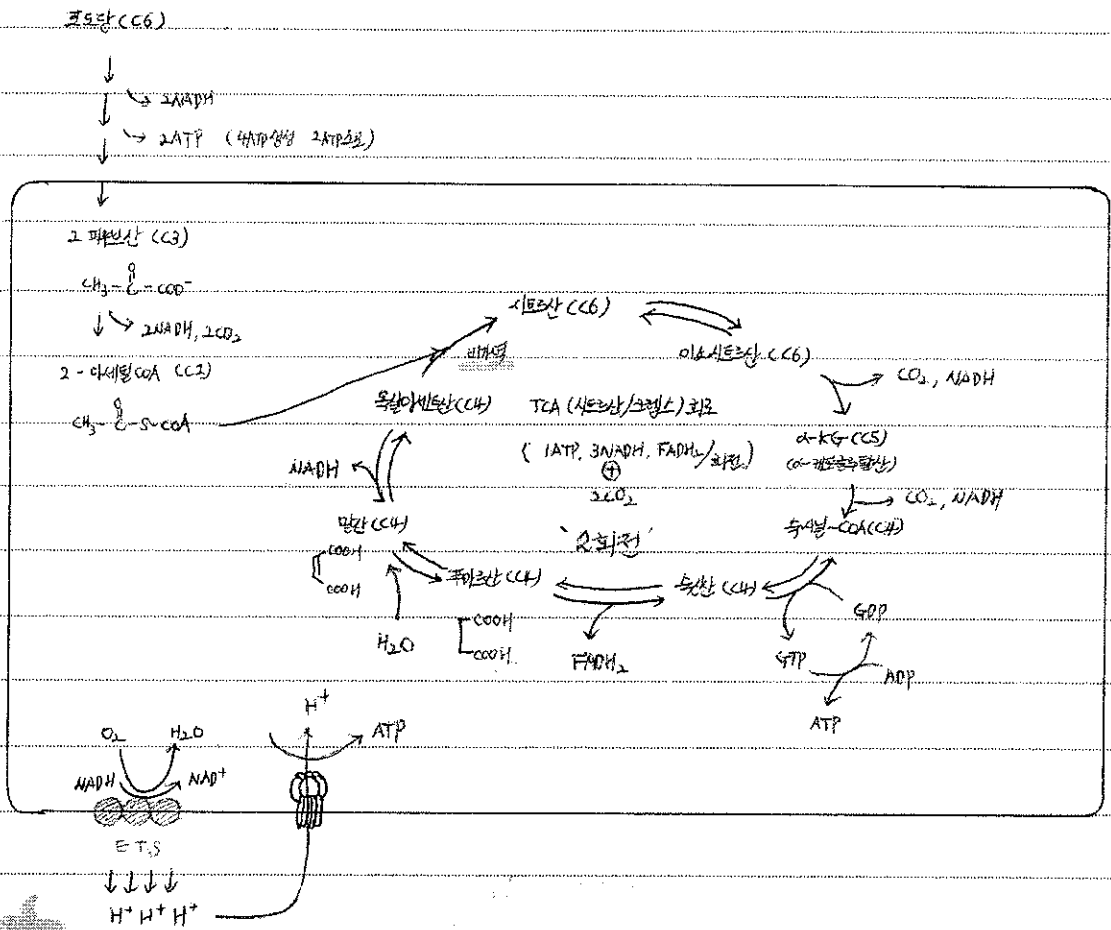 포도당 (C6)
2NADH
2ATP (4ATP생성 2ATP소모)
2 피루브산 (C3)
O
CH₃-C-COO⁻
2NADH, 2CO₂
2-아세틸COA (C2)
O
CH₃-C-S-COA
시트르산 (C6)
비가역
이소시트르산 (C6)
CO₂, NADH
옥살아세트산 (C4)
TCA (시트르산/크렙스) 회로
(1ATP, 3NADH, FADH₂/회전)
+
2CO₂
'2회전'
α-KG (C5)
(α-케토글루탈산)
CO₂, NADH
숙시닐-COA (C4)
NADH
말산 (C4)
COOH
COOH
푸마르산 (C4)
숙신산 (C4)
H₂O
COOH
COOH
FADH₂
GTP
GDP
ADP
ATP
O₂
H₂O
NADH
NAD⁺
H⁺
ATP
E T S
H⁺ H⁺ H⁺